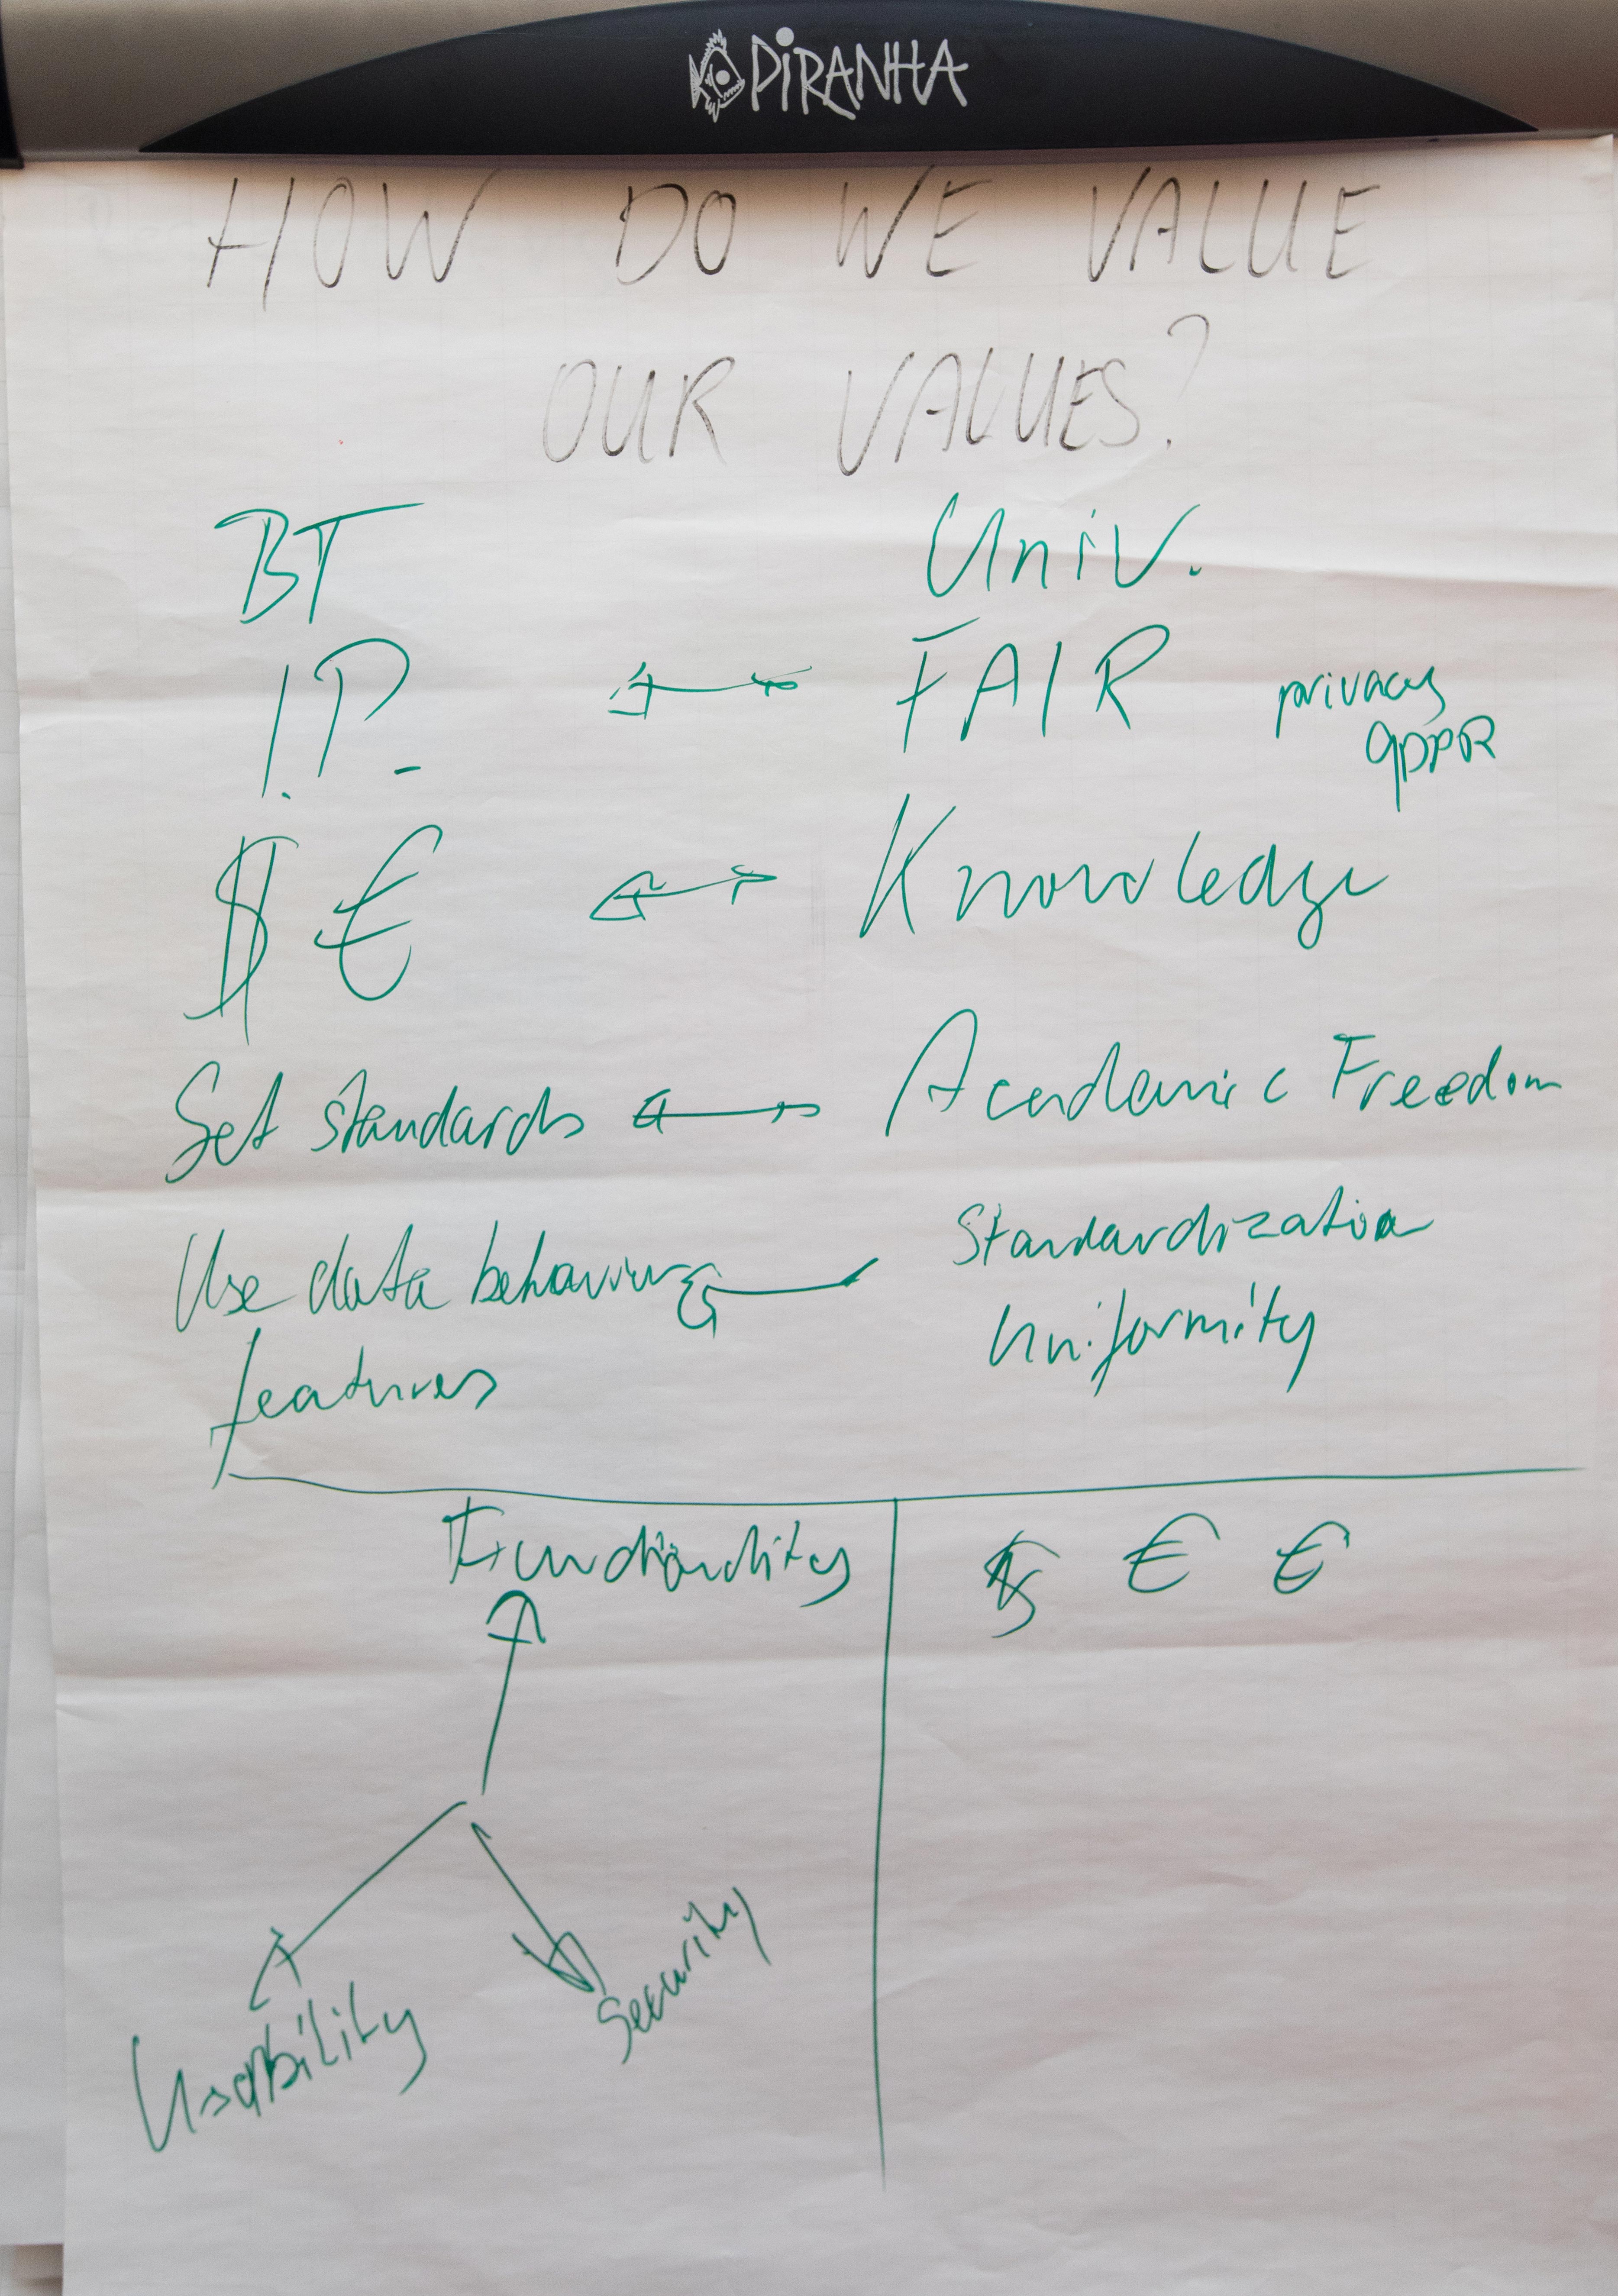 PIRANHA
HOW DO WE VALUE
OUR VALUES?
BT Univ.
I.P. FAIR privacy
GDPR
$ € Knowledge
Set standards Academic Freedom
Use data behaviour Standardization
features uniformity
Functionality € €
Usability Security